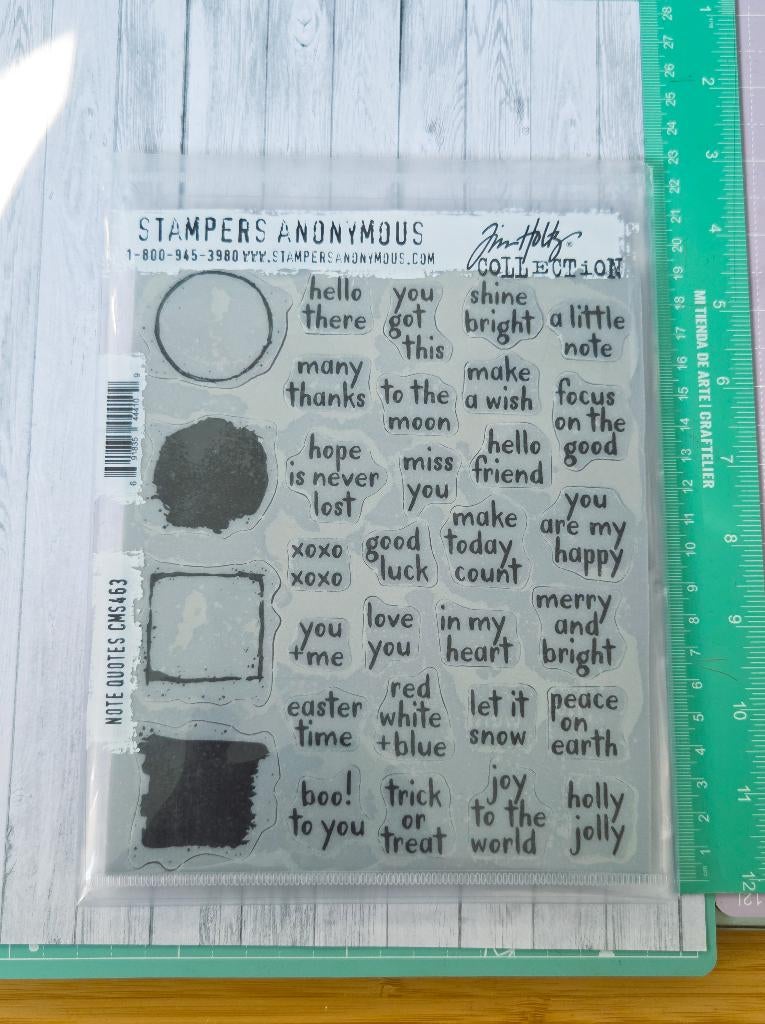 STAMPERS ANONYMOUS
1-800-945-3980 WWW.STAMPERSANONYMOUS.COM
Tim Holtz®
COLLECTION
hello
there
you
got
this
shine
bright
a little
note
many
thanks
to the
moon
make
a wish
focus
on the
good
hope
is never
lost
miss
you
hello
friend
xoxo
xoxo
good
luck
make
today
count
you
are my
happy
you
+me
love
you
in my
heart
merry
and
bright
easter
time
red
white
+blue
let it
snow
peace
on
earth
boo!
to you
trick
or
treat
joy
to the
world
holly
jolly
NOTE QUOTES CMS463
MI TIENDA DE ARTE | CRAFTELIER
28
27
26
25
24
23
22
21
20
19
18
17
16
15
14
13
12
11
10
9
8
7
6
5
4
3
2
1
1
2
3
4
5
6
7
8
9
10
11
12